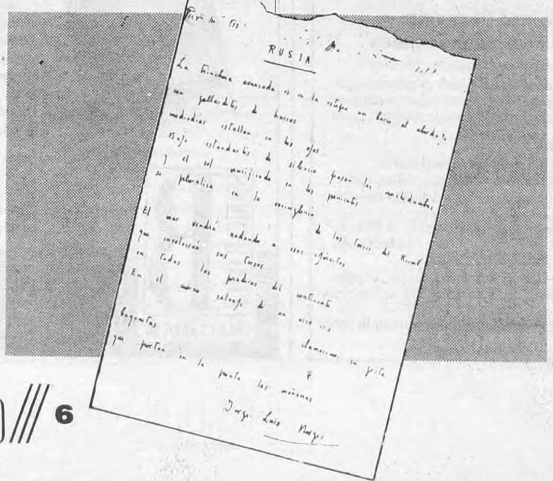 RUSIA
La trinchera avanzada es en la estepa un barco al abordaje
con gallardetes de hurras
mediodías estallan en los ojos
Bajo estandartes de silencio pasan las muchedumbres
y el sol crucificado en los ponientes
se pluraliza en la vocinglería
de las torres del Kreml
El mar vendrá nadando a esos ejércitos
que envolverán sus torsos
en todas las praderas del continente
En el salvaje de un arco iris
clamaremos su gesta
bayonetas
que portan en la punta las mañanas
Jorge Luis Borges
6